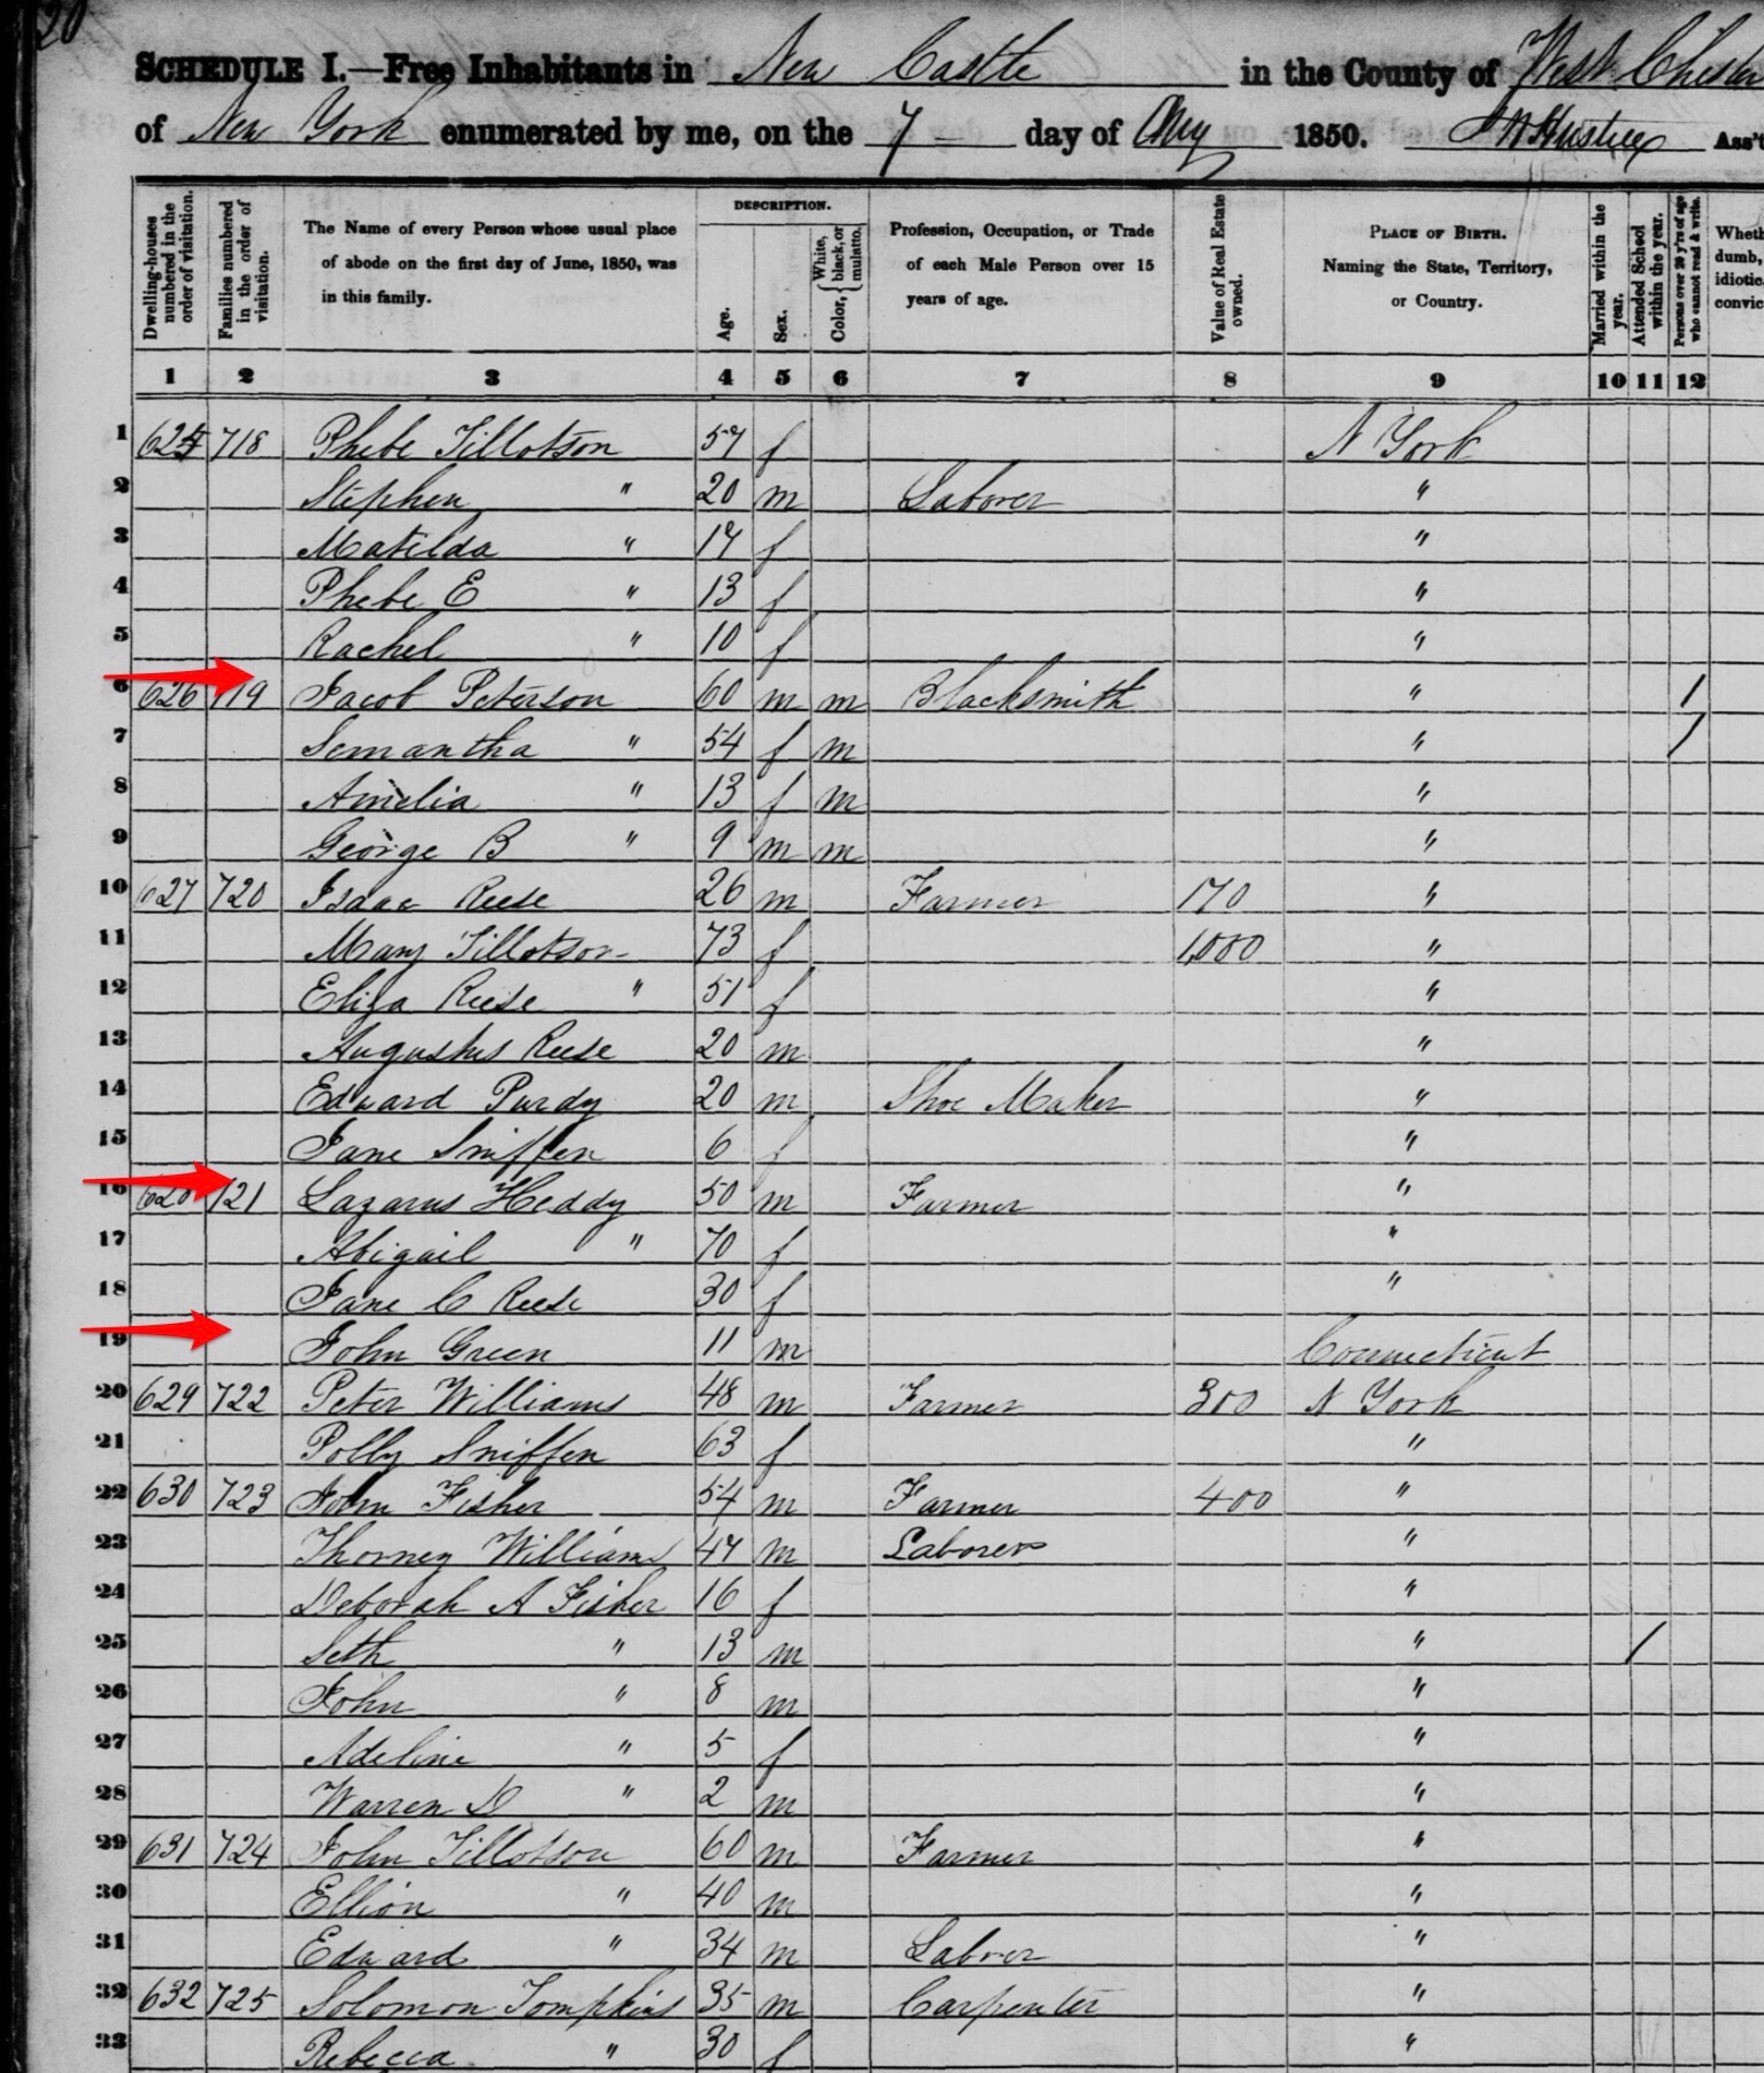 20
SCHEDULE I.—Free Inhabitants in New Castle in the County of West Chester
of New York enumerated by me, on the 7 day of Aug 1850. Ass't
Dwelling-houses numbered in the order of visitation. Families numbered in the order of visitation. The Name of every Person whose usual place of abode on the first day of June, 1850, was in this family. DESCRIPTION. Age. Sex. Color, { White, black, or mulatto. Profession, Occupation, or Trade of each Male Person over 15 years of age. Value of Real Estate owned. PLACE OF BIRTH. Naming the State, Territory, or Country. Married within the year. Attended School within the year. Persons over 20 y'rs of age who cannot read & write. Wheth dumb, idiotic, convic
1 2 3 4 5 6 7 8 9 10 11 12
1 625 718 Phebe Tillotson 57 f N York
2 Stephen " 20 m Laborer "
3 Matilda " 17 f "
4 Phebe E " 13 f "
5 Rachel " 10 f "
6 626 719 Jacob Peterson 60 m m Blacksmith " /
7 Semantha " 54 f m " /
8 Amelia " 13 f m "
9 George B " 9 m m "
10 627 720 Isaac Reese 26 m Farmer 170 "
11 Mary Tillotson 73 f 1,000 "
12 Eliza Reese " 51 f "
13 Augustus Reese 20 m "
14 Edward Purdy 20 m Shoe Maker "
15 Jane Sniffen 6 f "
16 628 721 Lazarus Heddy 50 m Farmer "
17 Abigail " 70 f "
18 Jane C Reese 30 f "
19 John Green 11 m Connecticut
20 629 722 Peter Williams 48 m Farmer 300 N York
21 Polly Sniffen 63 f "
22 630 723 John Fisher 54 m Farmer 400 "
23 Thorney Williams 47 m Laborer "
24 Deborah A Fisher 16 f "
25 Seth " 13 m " /
26 John " 8 m "
27 Adeline " 5 f "
28 Warren D " 2 m "
29 631 724 John Tillotson 60 m Farmer "
30 Ellion " 40 m "
31 Edward " 34 m Labrer "
32 632 725 Solomon Tompkins 35 m Carpenter "
33 Rebecca " 30 f "